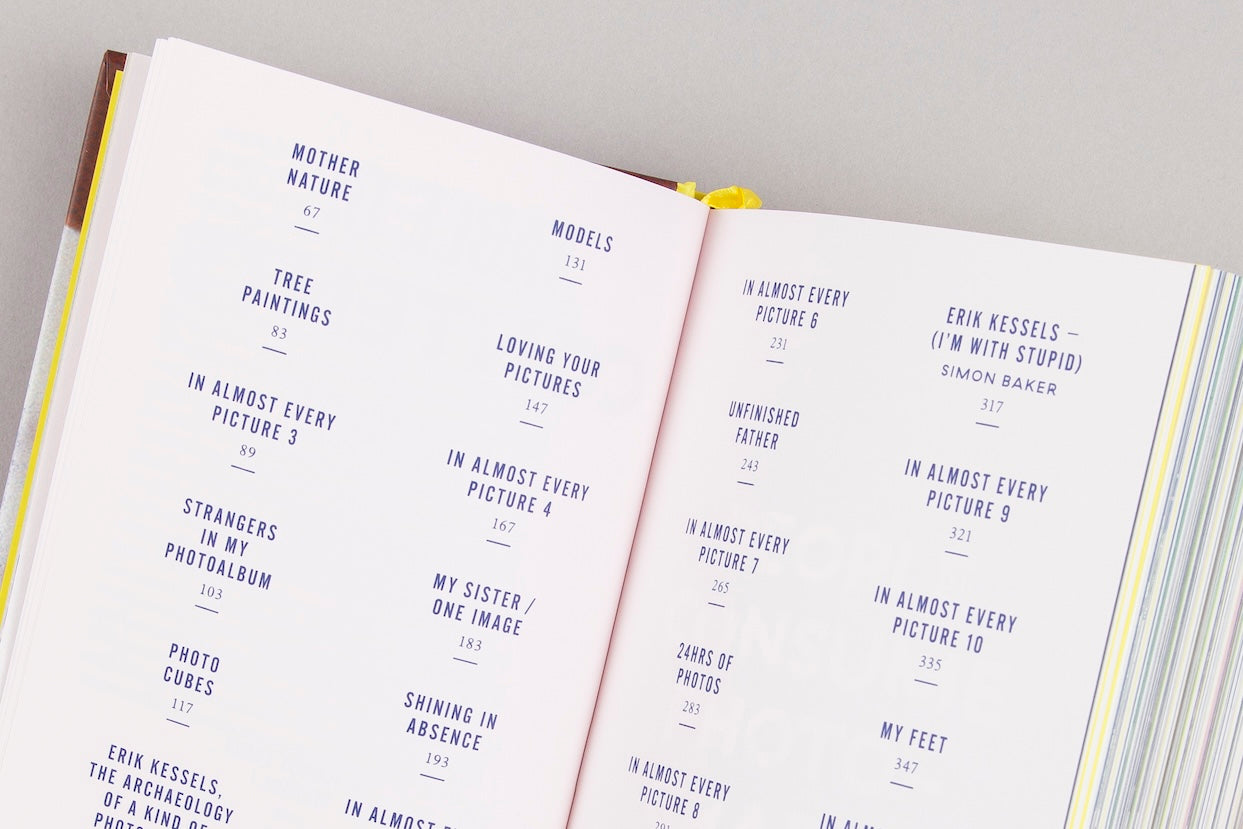 MOTHER
NATURE
67
TREE
PAINTINGS
83
IN ALMOST EVERY
PICTURE 3
89
STRANGERS
IN MY
PHOTOALBUM
103
PHOTO
CUBES
117
ERIK KESSELS,
THE ARCHAEOLOGY
OF A KIND OF
MODELS
131
LOVING YOUR
PICTURES
147
IN ALMOST EVERY
PICTURE 4
167
MY SISTER /
ONE IMAGE
183
SHINING IN
ABSENCE
193
IN ALMOST
IN ALMOST EVERY
PICTURE 6
231
UNFINISHED
FATHER
243
IN ALMOST EVERY
PICTURE 7
265
24HRS OF
PHOTOS
283
IN ALMOST EVERY
PICTURE 8
ERIK KESSELS –
(I'M WITH STUPID)
SIMON BAKER
317
IN ALMOST EVERY
PICTURE 9
321
IN ALMOST EVERY
PICTURE 10
335
MY FEET
347
IN